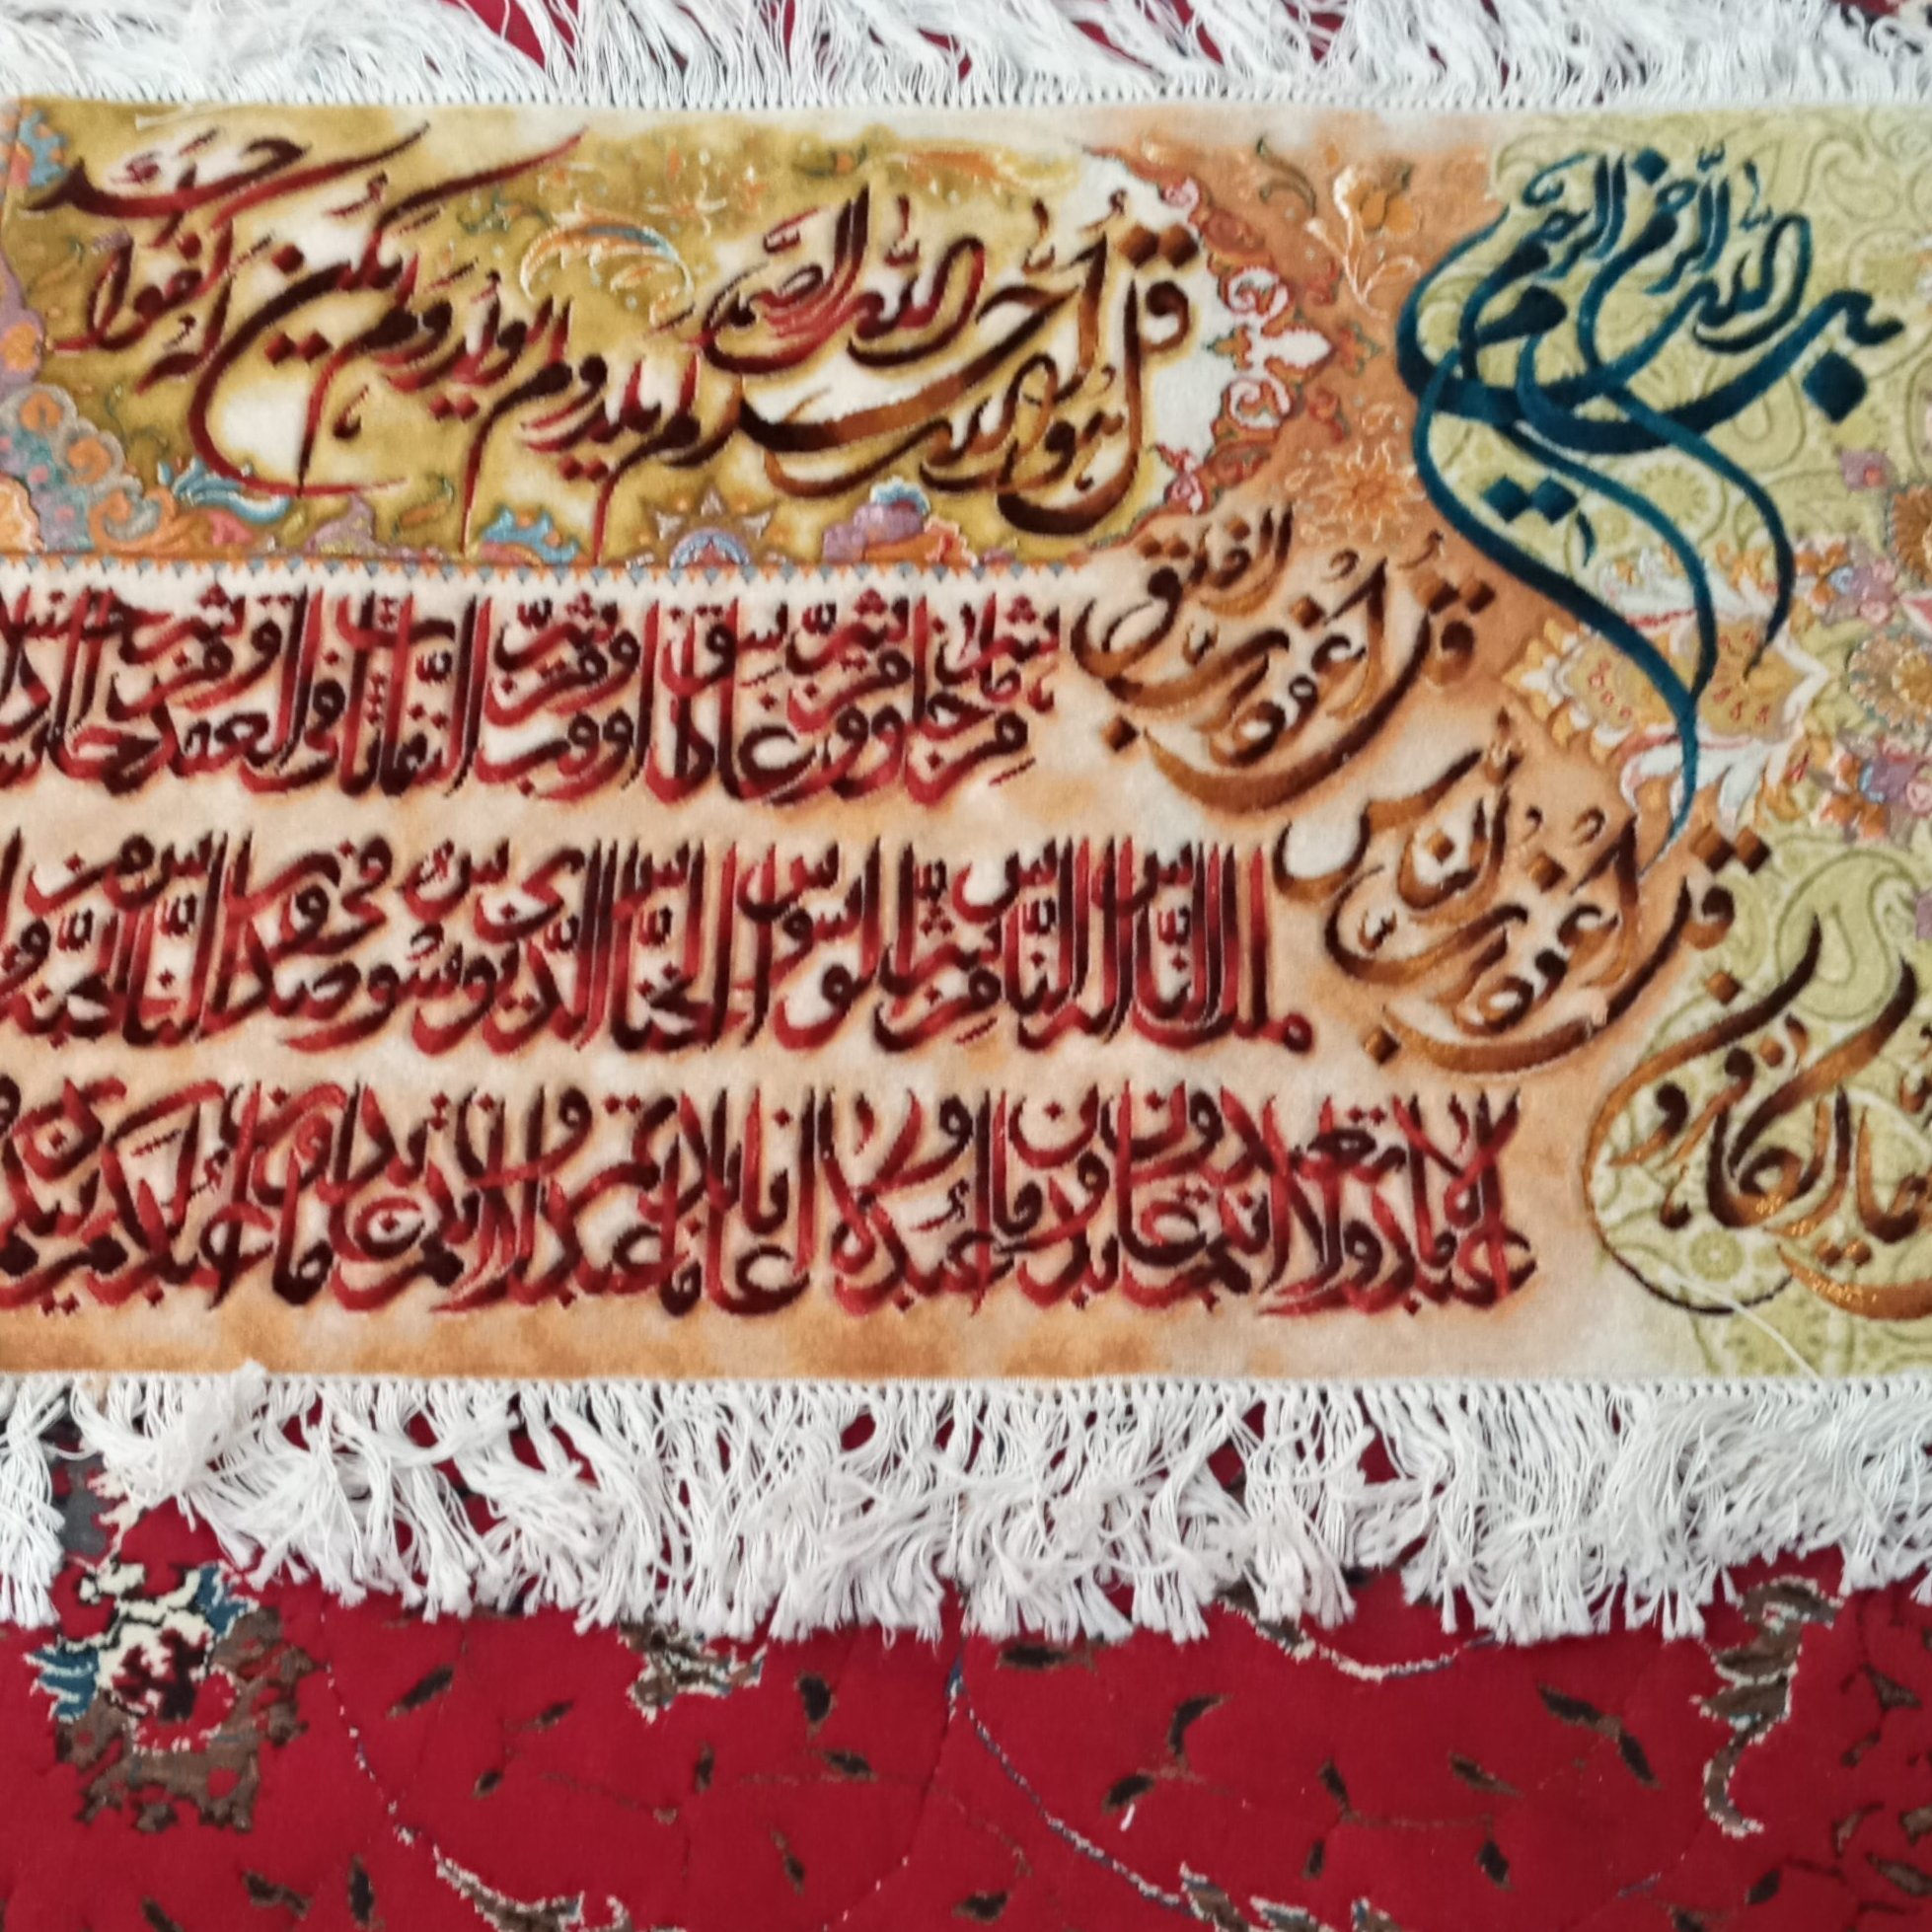 بسم الله الرحمن الرحيم
قُل هُوَ اللَّه أَحَد اللَّه الصَّمَد لم يلد ولم يولَد وَلَم يَكُن لَه كُفُوا أَحَد
قُل أعُوذ بربّ الفلق
مِن شرّ ما خلق ومن شرّ غاسق اذا وقب ومن شرّ النفّاثات في العقد ومن شر حاسد
قُل أعُوذ بربّ النّاس
ملك النّاس اله النّاس من شرّ الوسواس الخنّاس الّذي يوسوس في صدور النّاس من الجنّة و
قل يا أيها الكافرون
لا أعبد ما تعبدون ولا انتم عابدون ما أعبد ولا انا عابد ما عبدتم ولا انتم عابدون ما أعبد لكم دينكم